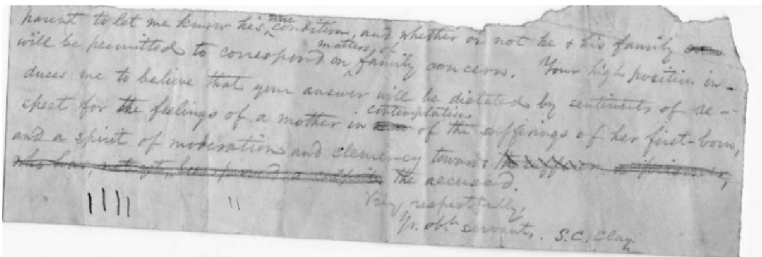 parent to let me know his true condition, and whether or not he & his family
will be permitted to correspond on matters of family concern. Your high position in-
duces me to believe that your answer will be dictated by sentiments of re-
spect for the feelings of a mother in contemplation of the sufferings of her first-born,
and a spirit of moderation and clemency towards
the accused.
Very respectfully,
Yr. obt. servant, S.C. Clay